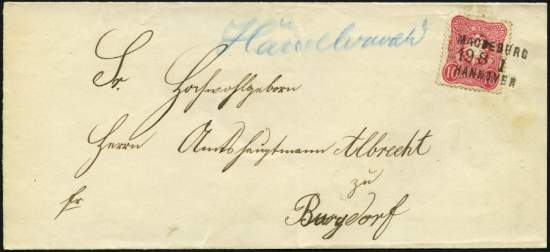 Hämelerwald
MAGDEBURG
19 8 I
HANNOVER
Sr. Hochwohlgeborn
Herrn Amtshauptmann Albrecht
zu
fr Burgdorf